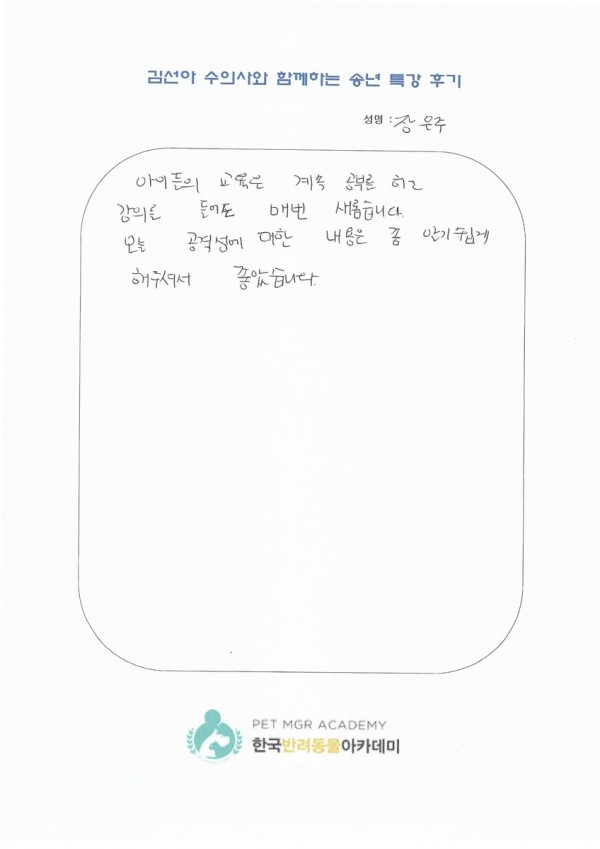 김선아 수의사와 함께하는 송년 특강 후기
성명 : 장은주
아이들의 교육은 계속 공부를 하고
강의를 들어도 매번 새롭습니다.
오늘 공격성에 대한 내용은 좀 알기 쉽게
해주셔서 좋았습니다.
PET MGR ACADEMY
한국반려동물아카데미